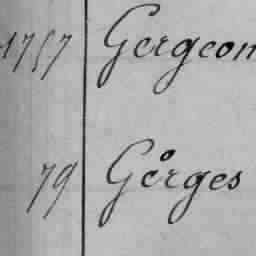 1757 Gergeon
79 Gerges